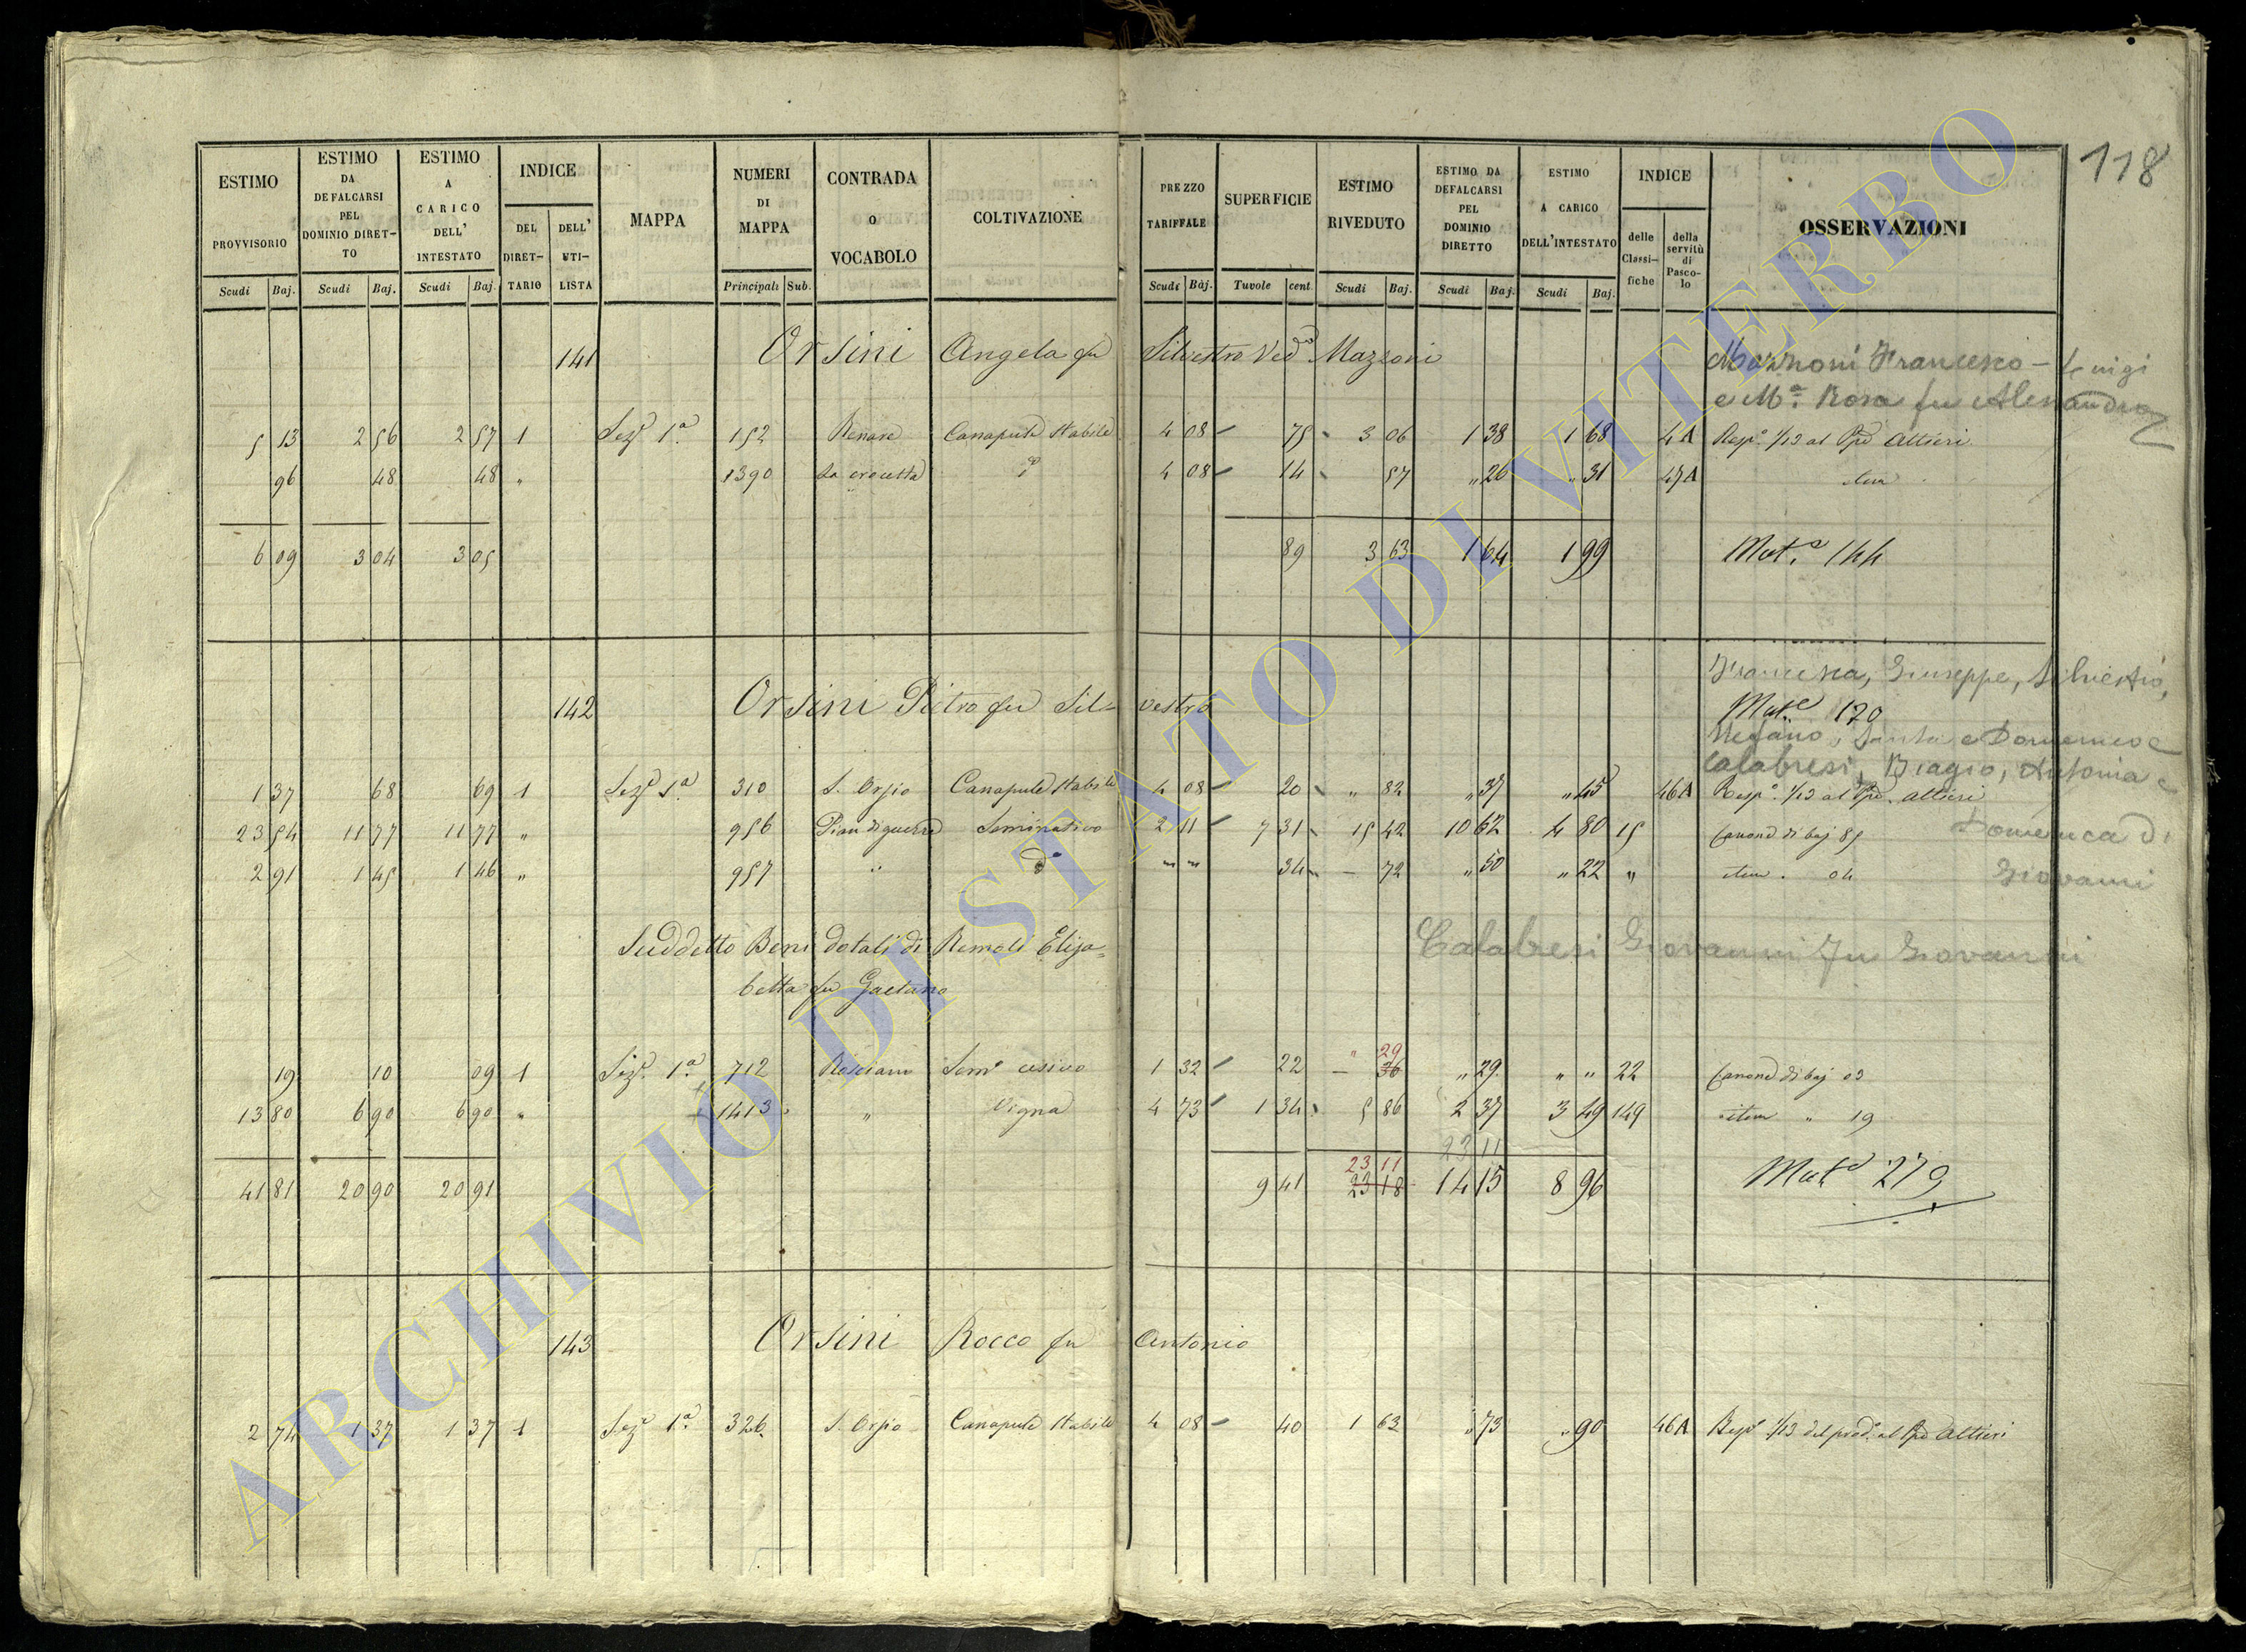 118
ESTIMO PROVVISORIO Scudi Baj.
ESTIMO DA DEFALCARSI PEL DOMINIO DIRETTO Scudi Baj.
ESTIMO A CARICO DELL' INTESTATO Scudi Baj.
INDICE DEL DIRETTARIO DELL' UTILISTA
MAPPA
NUMERI DI MAPPA Principali Sub.
CONTRADA o VOCABOLO
COLTIVAZIONE
PREZZO TARIFFALE Scudi Baj.
SUPERFICIE Tavole cent.
ESTIMO RIVEDUTO Scudi Baj.
ESTIMO DA DEFALCARSI PEL DOMINIO DIRETTO Scudi Baj.
ESTIMO A CARICO DELL'INTESTATO Scudi Baj.
INDICE delle Classifiche della servitù di Pascolo
OSSERVAZIONI
141 Orsini Angela fu Silvestro Ved.a Mazzoni
Mazzoni Francesco - Luigi
e M.a Rosa fu Alessandro
5 13 2 56 2 57 1 Sez.e 1.a 152 Renare Canapule Stabile 4 08 75 3 06 1 38 1 68 4A Resp.a 1/13 al Ppe Altieri
96 48 48 " 1390 La crocetta d.o 4 08 14 57 " 26 " 31 47A idem
6 09 3 04 3 05 89 3 63 1 64 1 99 Mat.e 144
142 Orsini Pietro fu Silvestro
Francesca, Giuseppe, Silvestro,
Mat.e 120
Stefano, Santa e Domenico
Calabresi, Biagio, Antonia e
Domenica di
Giovanni
1 37 68 69 1 Sez.e 1.a 310 S. Orsio Canapule Stabile 4 08 20 " 82 " 37 " 45 46A Resp.a 1/13 al Ppe. Altieri
23 54 11 77 11 77 " 956 Pian di guerra Seminativo 2 11 7 31 15 42 10 62 4 80 15 Canone di baj 85
2 91 1 45 1 46 " 957 " d.o " " 34 — 72 " 50 " 22 " idem . 04
Suddetto Beni dotali di Remoli Elisabetta fu Gaetano
Calabresi Giovanni fu Giovanni
19 10 09 1 Sez.e 1.a 712 Sem.o 1 32 22 " 29 36 " 29 " " 22 Canone di baj 03
13 80 6 90 6 90 " 1413 " Vigna 4 73 1 34 5 86 2 37 3 49 149 item " 19
23 11
41 81 20 90 20 91 9 41 23 11 23 18 14 15 8 96 Mat.e 279
143 Orsini Rocco fu Antonio
2 74 1 37 1 37 1 Sez.e 1.a 326 S. Orsio Canapule Stabile 4 08 40 1 63 " 73 " 90 46A Resp.a 1/13 del prod.o al Ppe Altieri
ARCHIVIO DI STATO DI VITERBO